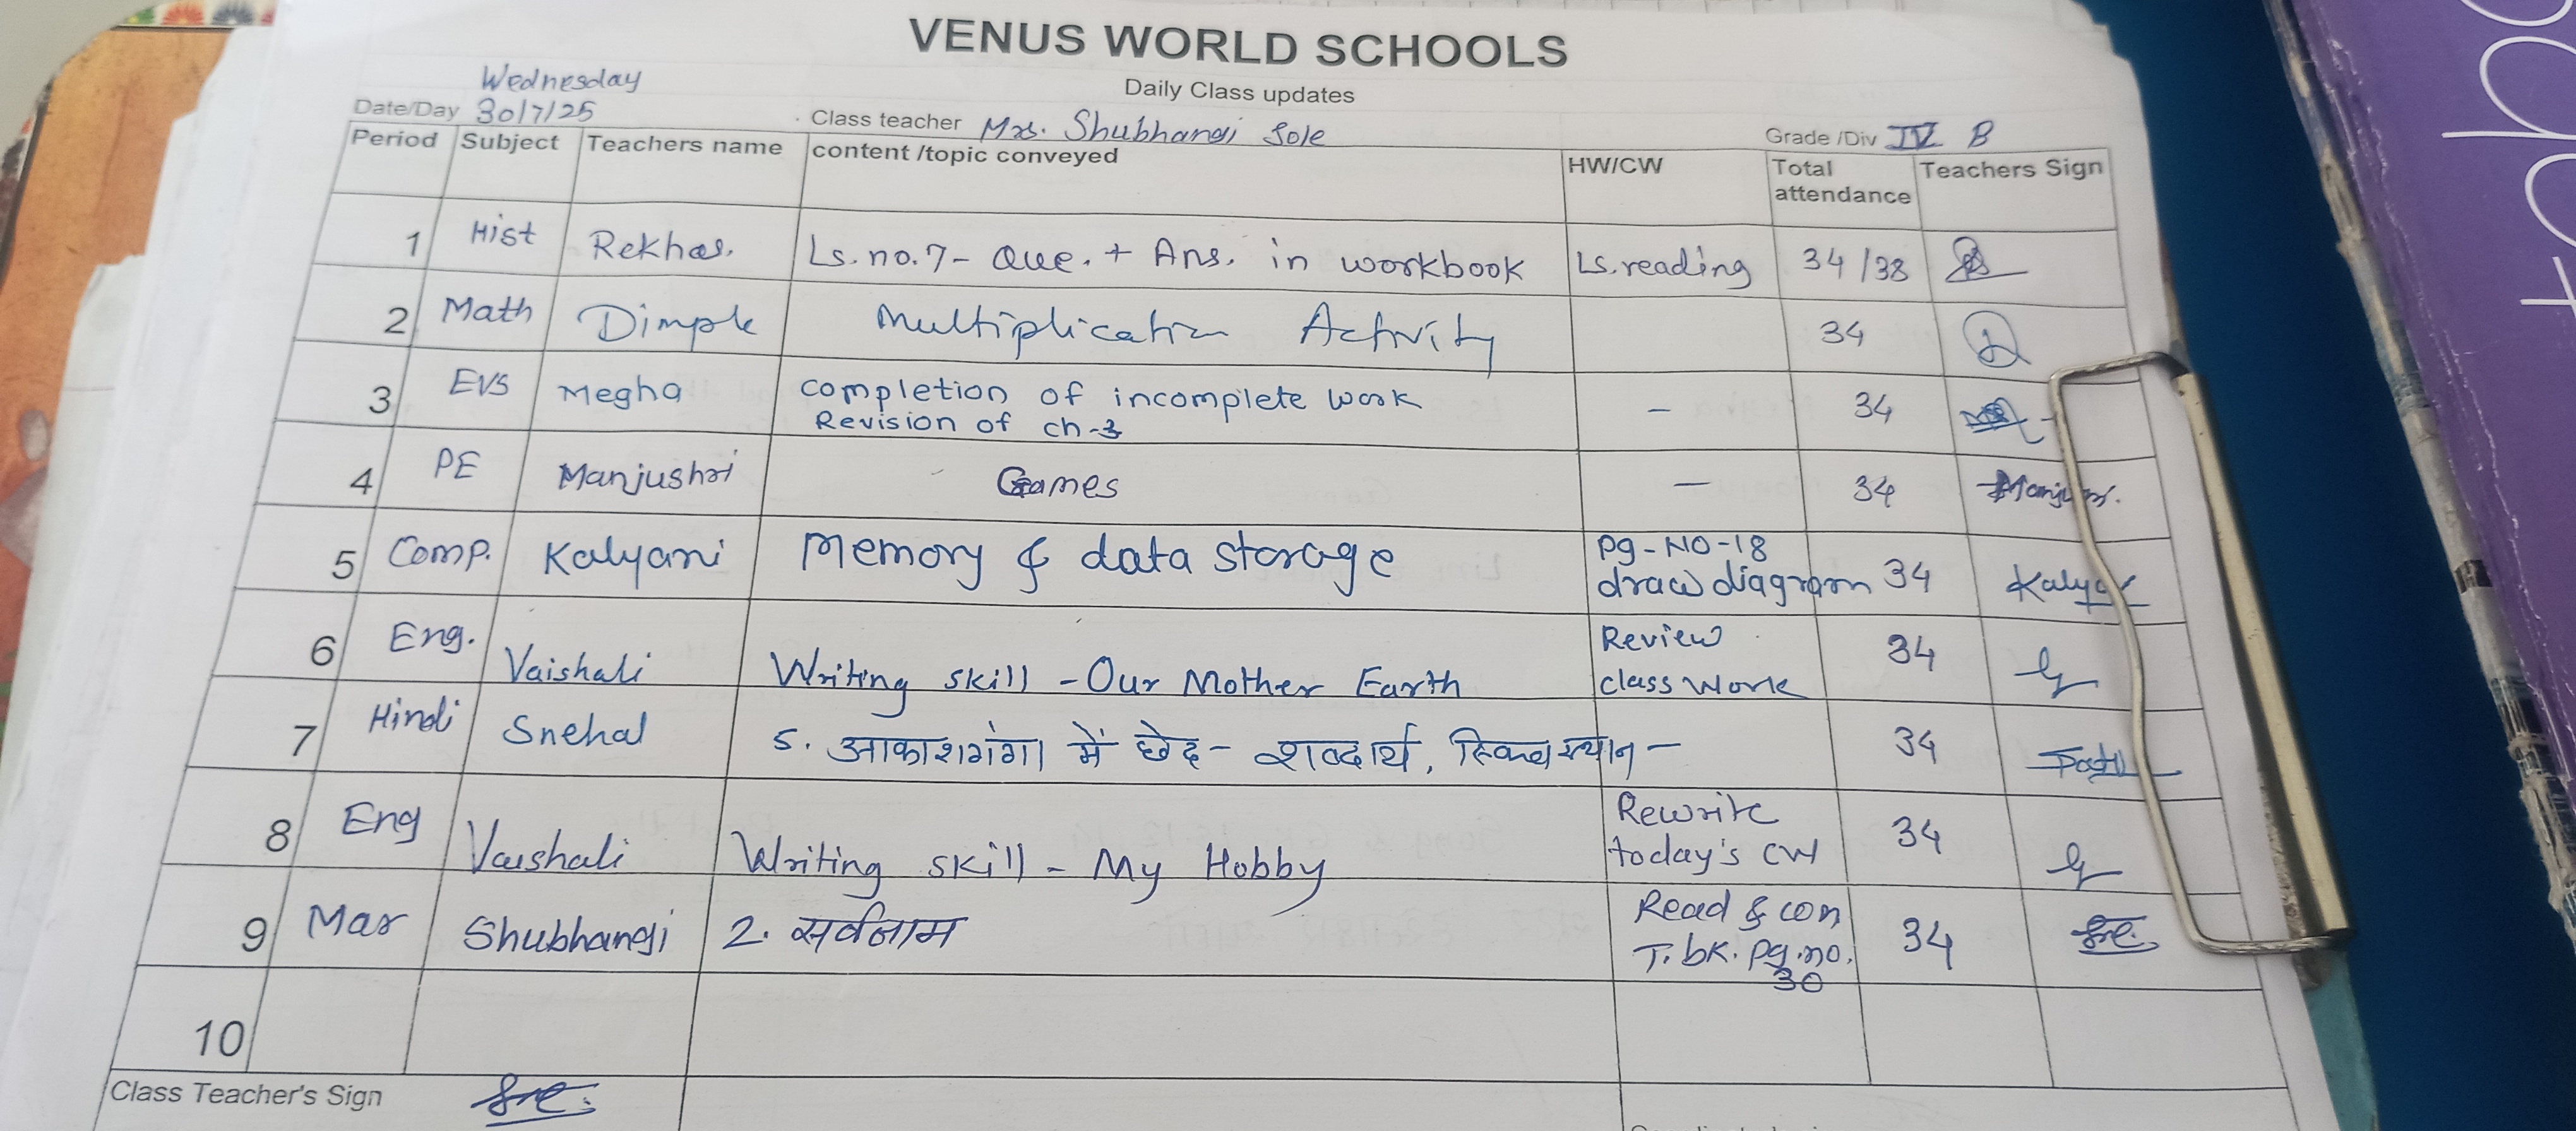 VENUS WORLD SCHOOLS
Daily Class updates
Wednesday
Date/Day 30/7/25 Class teacher Mrs. Shubhangi Sole Grade /Div IV B
Period Subject Teachers name content /topic conveyed HW/CW Total attendance Teachers Sign
1 Hist Rekha S. Ls. no. 7 - Que. + Ans. in workbook Ls. reading 34 /38
2 Math Dimple Multiplication Activity 34
3 EVS Megha completion of incomplete work - 34
Revision of ch-3
4 PE Manjushri Games - 34
5 Comp. Kalyani Memory & data storage pg-NO-18 draw diagram 34
6 Eng. Vaishali Writing skill - Our Mother Earth Review class work 34
7 Hindi Snehal 5. आकाशगंगा में छेद - शब्दार्थ, रिक्त स्थान - 34
8 Eng Vaishali Writing skill - My Hobby Rewrite today's CW 34
9 Mar Shubhangi 2. सर्वनाम Read & con T. bk. pg. no. 30 34
10
Class Teacher's Sign